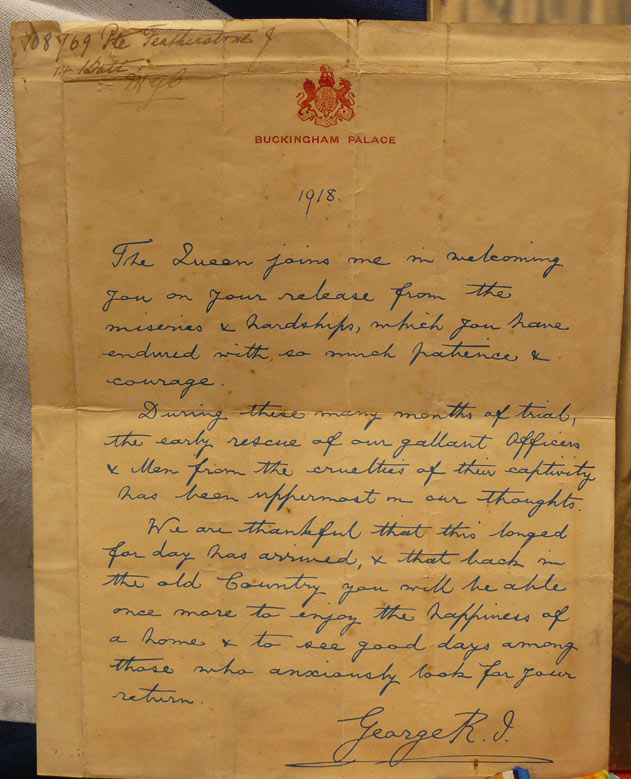 108769 Pte Featherstone J
Batt
MGC
BUCKINGHAM PALACE
1918.
The Queen joins me in welcoming
you on your release from the
miseries & hardships, which you have
endured with so much patience &
courage.
During these many months of trial,
the early rescue of our gallant Officers
& Men from the cruelties of their captivity
has been uppermost in our thoughts.
We are thankful that this longed
for day has arrived, & that back in
the old Country you will be able
once more to enjoy the happiness of
a home & to see good days among
those who anxiously look for your
return.
George R. I.